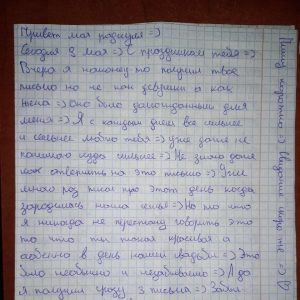 Привет моя родная =)
Сегодня 3 мая =) С праздником тебя =)
Вчера я наконец то получил твоё
письмо но не как девушки а как
жена =) Оно было долгожданным для
меня =) Я с каждым днём всё сильнее
и сильнее люблю тебя =) уже даже не
куда сильнее =) Не знаю даже
как ответить на это письмо =) Уже
много раз писал про этот день когда
зародилась наша семья =) Но то что
я никогда не перестану говорить это
то что ты такая красивая а
особенно в день нашей свадьбы =) Это
было необычно и незабываемо =) А да
я получил сразу 3 письма =)